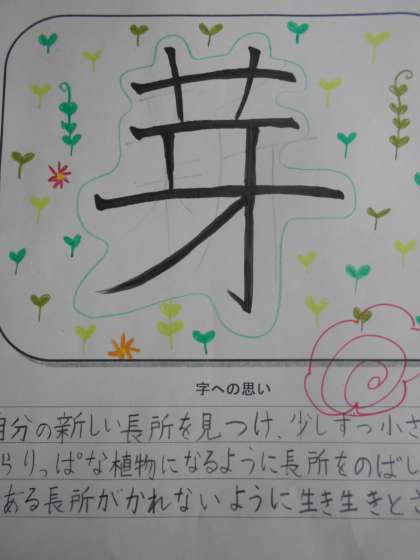 芽
字への思い
自分の新しい長所を見つけ、少しずつ小さ
らりっぱな植物になるように長所をのばし
ある長所がかれないように生き生きとさ